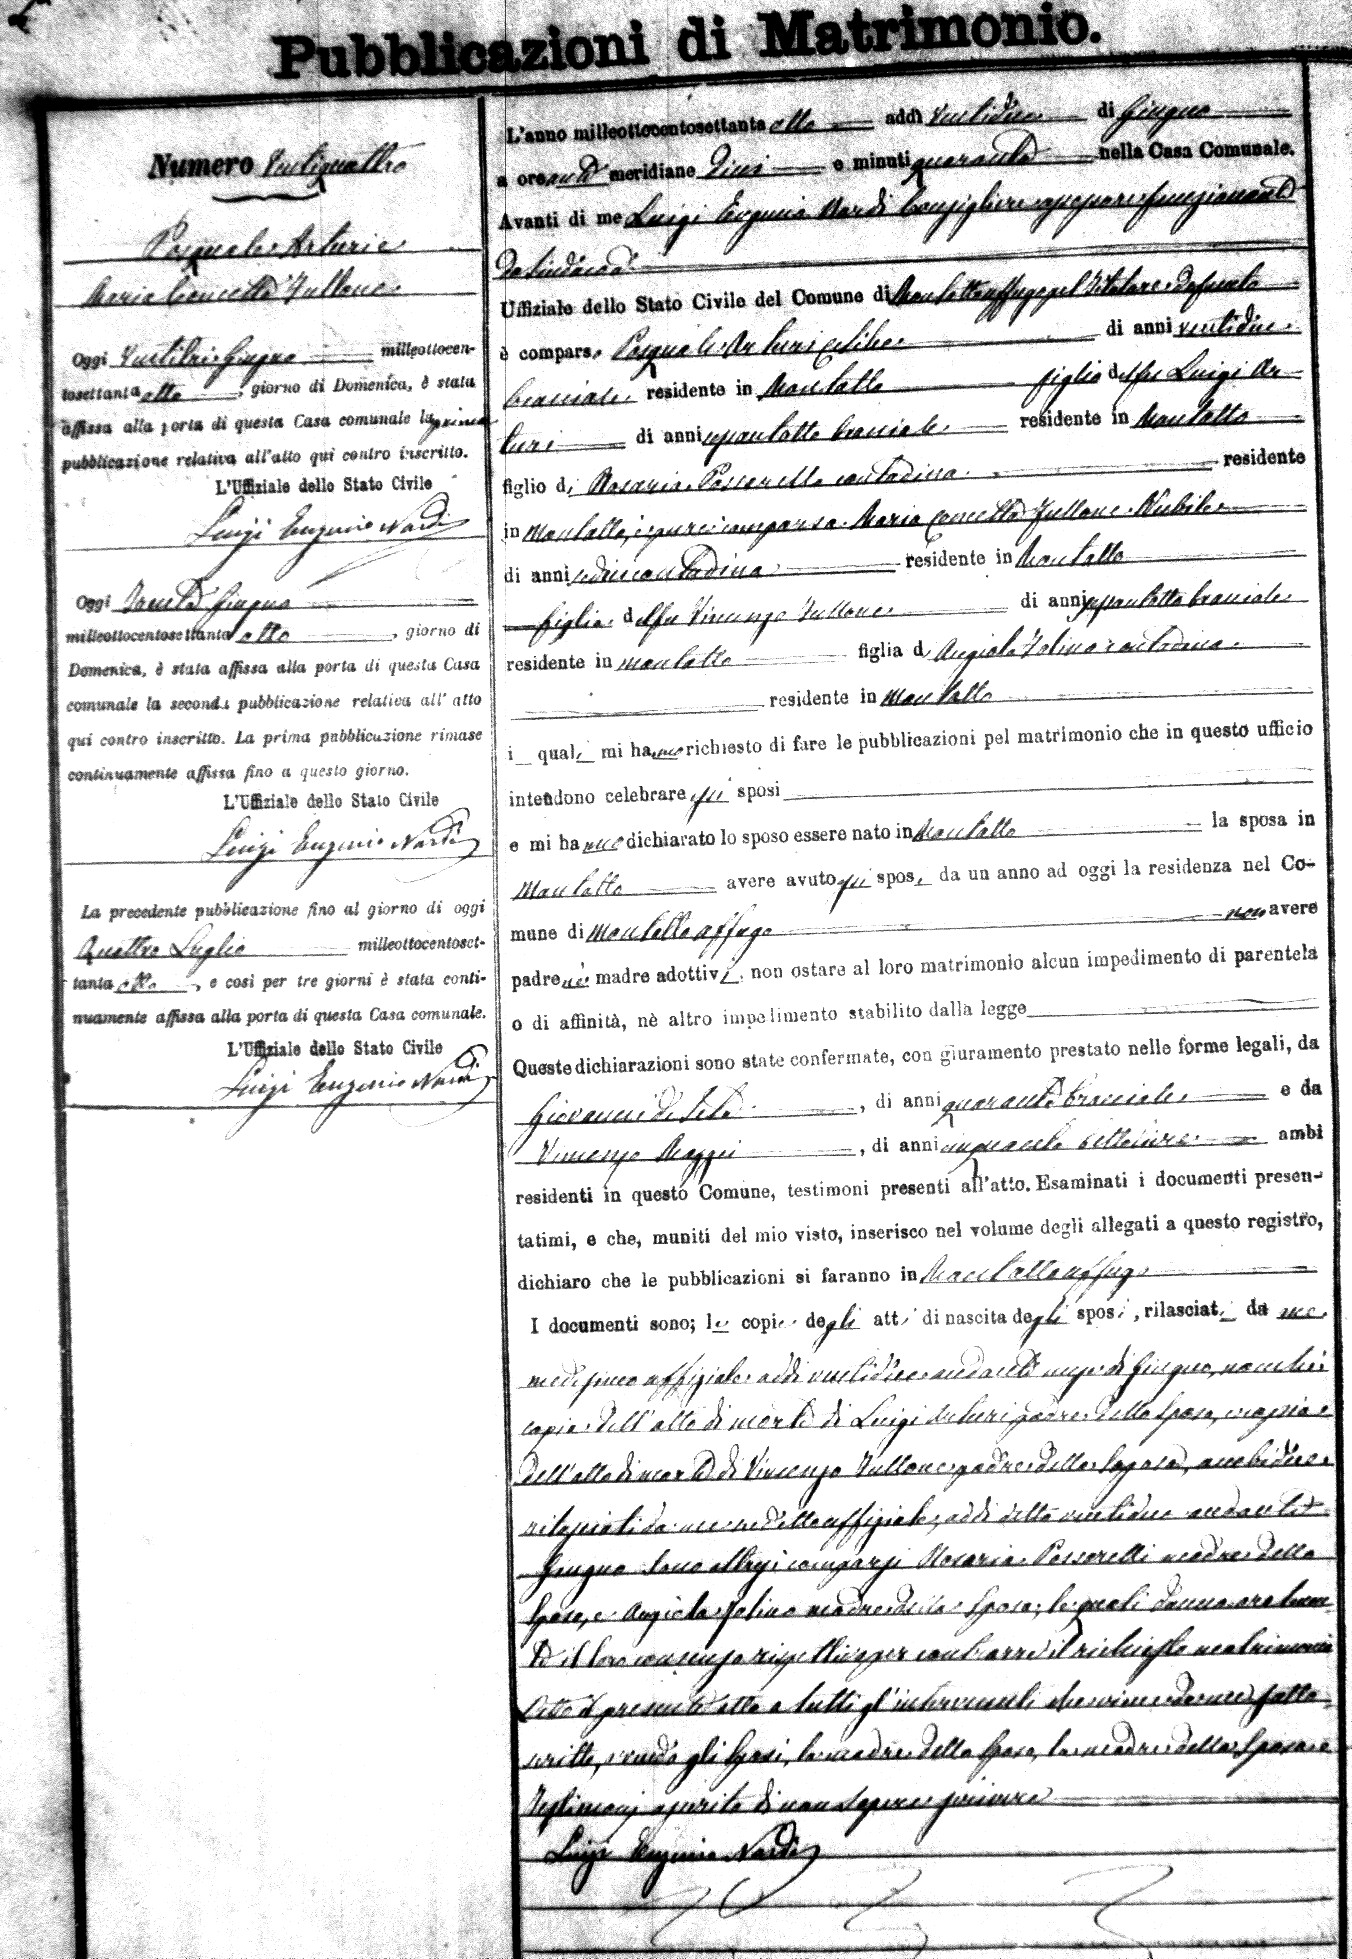 Pubblicazioni di Matrimonio.
Numero Ventiquattro
Pasquale Arturi e
Maria Concetta Fullone
Oggi Ventitre Giugno milleottocen-
tosettanta otto, giorno di Domenica, è stata
affissa alla porta di questa Casa comunale la prima
pubblicazione relativa all'atto qui contro inscritto.
L'Uffiziale dello Stato Civile
Luigi Eugenio Nardi
Oggi Trenta Giugno
milleottocentosettanta otto, giorno di
Domenica, è stata affissa alla porta di questa Casa
comunale la seconda pubblicazione relativa all'atto
qui contro inscritto. La prima pubblicazione rimase
continuamente affissa fino a questo giorno.
L'Uffiziale dello Stato Civile
Luigi Eugenio Nardi
La precedente pubblicazione fino al giorno di oggi
Quattro Luglio milleottocentoset-
tanta otto, e così per tre giorni è stata conti-
nuamente affissa alla porta di questa Casa comunale.
L'Uffiziale dello Stato Civile
Luigi Eugenio Nardi
L'anno milleottocentosettanta otto addì ventidue di Giugno
a ore anti meridiane dieci e minuti quaranta nella Casa Comunale.
Avanti di me Luigi Eugenio Nardi Consigliere funzionante
da Sindaco
Uffiziale dello Stato Civile del Comune di Montaltouffugo pel titolare defunto
è comparso Pasquale Arturi celibe di anni ventidue
bracciale residente in Montalto figlio del fu Luigi Ar
turi di anni bracciale residente in Montalto
figlio di Rosaria Passarelli contadina residente
in Montalto, e pure comparsa Maria Concetta Fullone Nubile
di anni sedici contadina residente in Montalto
figlia del fu Vincenzo Fullone di anni bracciale
residente in Montalto figlia d Angiola contadina
residente in Montalto
i quali mi hanno richiesto di fare le pubblicazioni pel matrimonio che in questo ufficio
intendono celebrare gli sposi
e mi hanno dichiarato lo sposo essere nato in Montalto la sposa in
Montalto avere avuto gli sposi da un anno ad oggi la residenza nel Co-
mune di Montalto uffugo non avere
padre nè madre adottivi, non ostare al loro matrimonio alcun impedimento di parentela
o di affinità, nè altro impedimento stabilito dalla legge
Queste dichiarazioni sono state confermate, con giuramento prestato nelle forme legali, da
Giovanni de Seta, di anni quaranta bracciale e da
Vincenzo, di anni cinquanta ambi
residenti in questo Comune, testimoni presenti all'atto. Esaminati i documenti presen-
tatimi, e che, muniti del mio visto, inserisco nel volume degli allegati a questo registro,
dichiaro che le pubblicazioni si faranno in Montalto uffugo
I documenti sono; le copie degli atti di nascita degli sposi, rilasciati da me
medesimo uffiziale addì ventidue andante mese di Giugno, nonchè
copia dell'atto di morte di Luigi Arturi padre dello sposo, e copia
dell'atto di morte di Vincenzo Fullone padre della sposa, ambidue
rilasciati da me uffiziale, addì detto ventidue andante
Giugno. Sono altresì comparse Rosaria Passarelli madre dello
sposo, e Angiola madre della sposa; le quali danno
il loro consenso rispettivo per contrarre il richiesto matrimonio
Letto il presente atto a tutti gl'intervenuti da me
scritto, avendo gli sposi, la madre dello sposo, la madre della sposa e
Testimoni asserito di non sapere scrivere
Luigi Eugenio Nardi